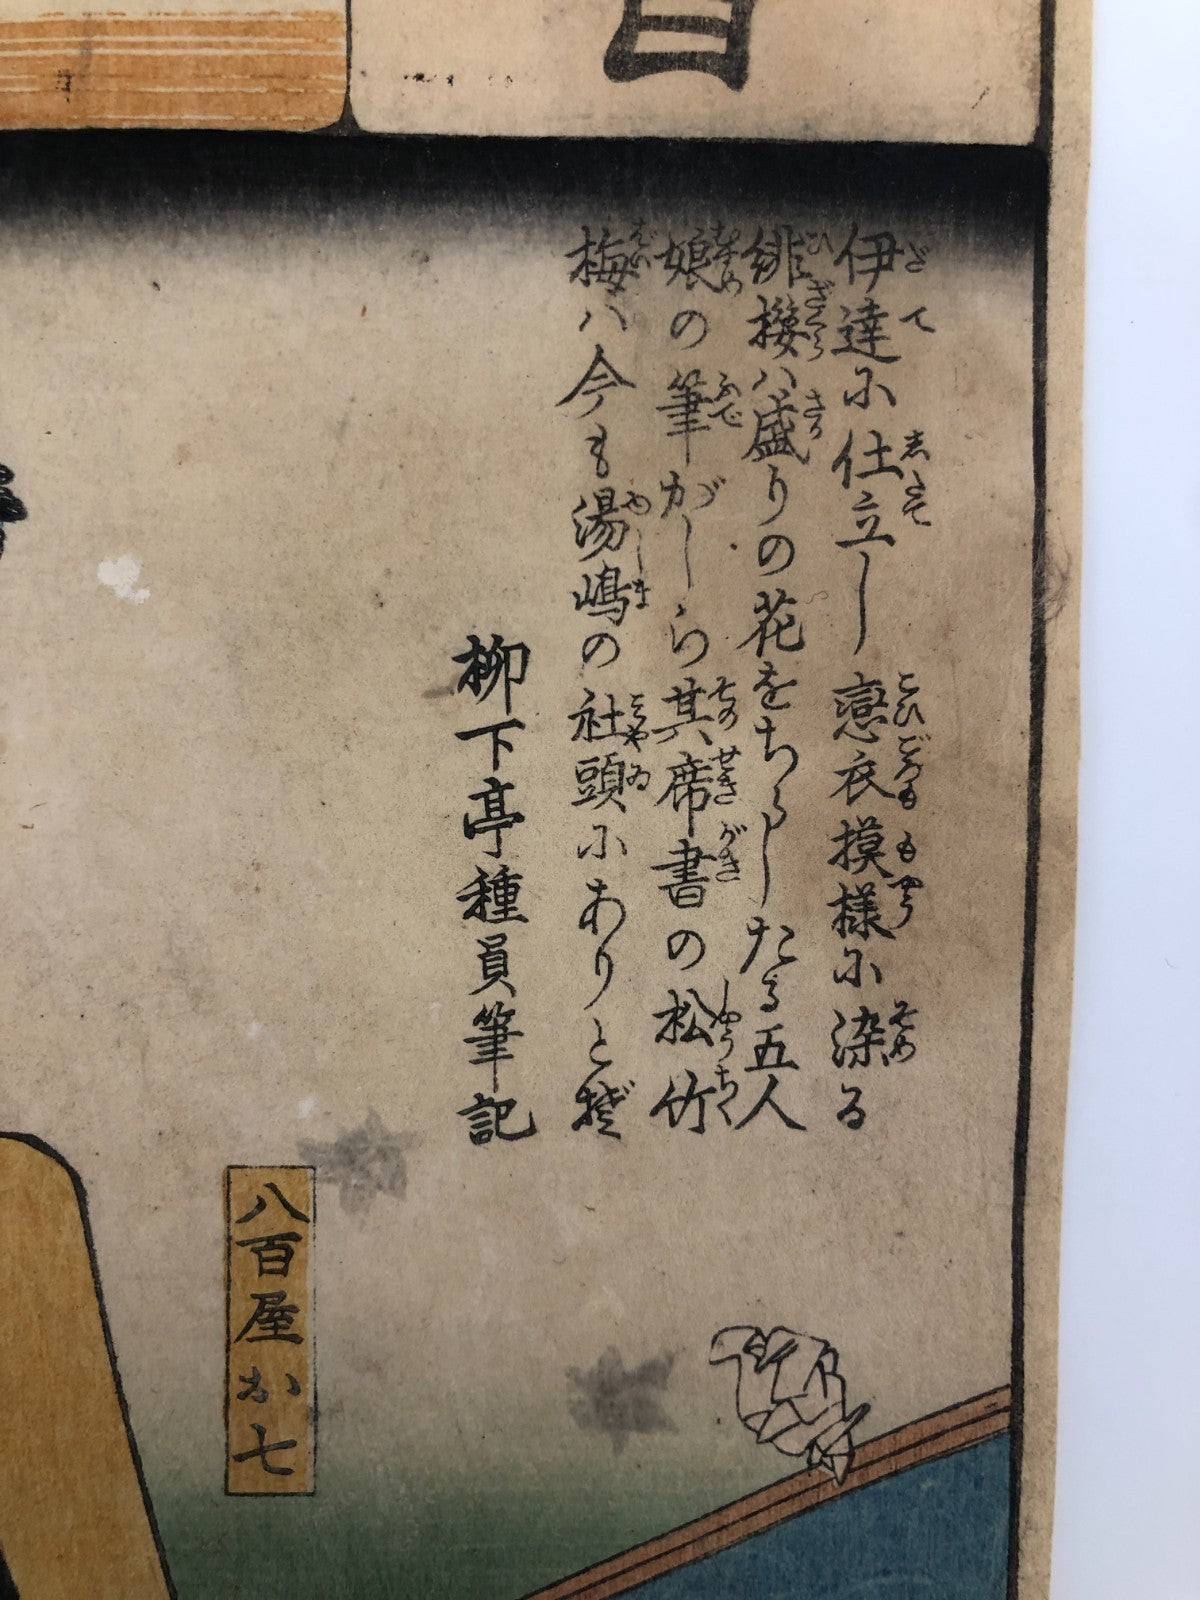 伊達に仕立し戀衣摸様に染る
緋櫻ハ盛りの花をちらしたる五人
娘の筆がしら其席書の松竹
梅ハ今も湯嶋の社頭にありとぞ
柳下亭種員筆記
八百屋お七